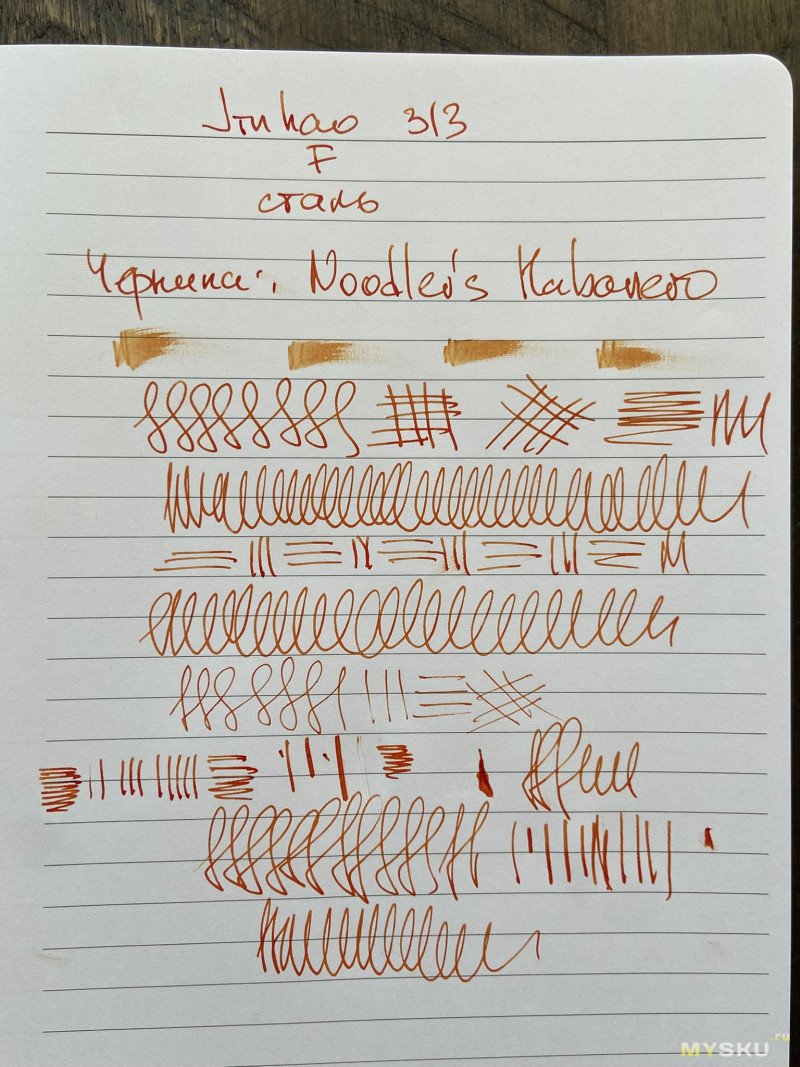 Jinhao 313
F
сталь
Чернила: Noodler's Habanero
MYSKU.ru